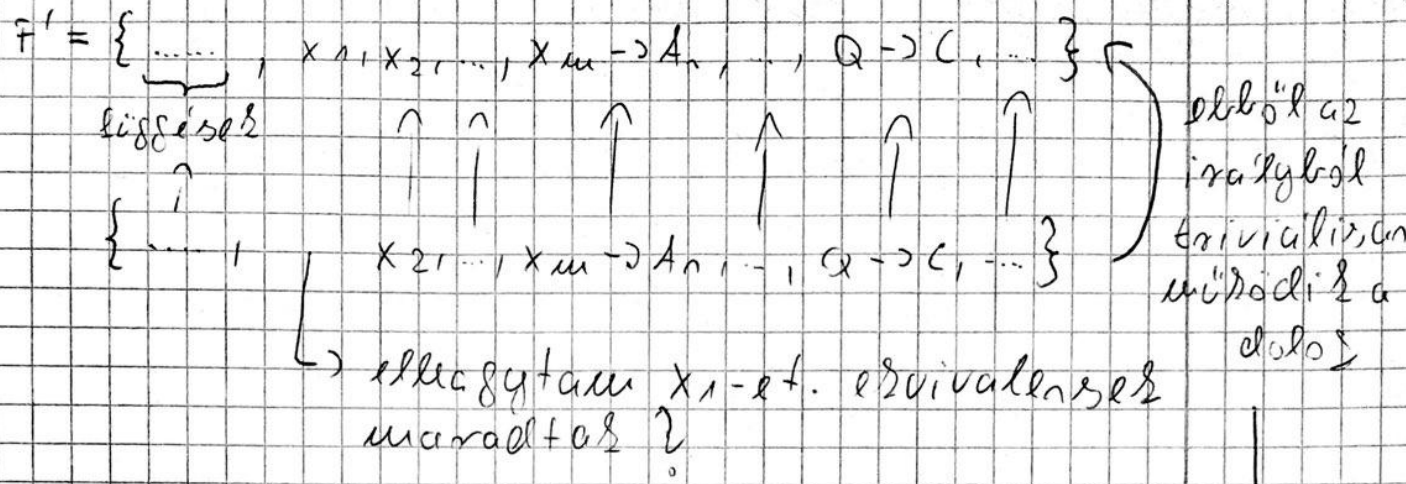 F' = { ......, x1, x2, ..., xm -> An, ..., Q -> C, ... }
függések
ebből az
irányból
triviálisan
működik a
dolog
{ ....., x2, ..., xm -> An, ..., Q -> C, ... }
elhagytam x1-et. ekvivalensek
maradtak ?